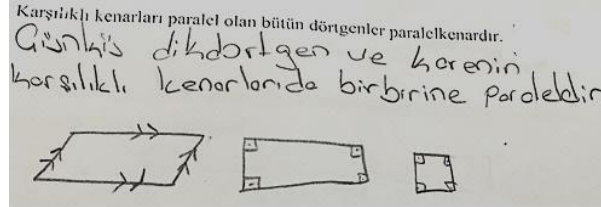 Karşılıklı kenarları paralel olan bütün dörtgenler paralelkenardır.
Çünkü dikdörtgen ve karenin
karşılıklı kenarlarıda birbirine paraleldir